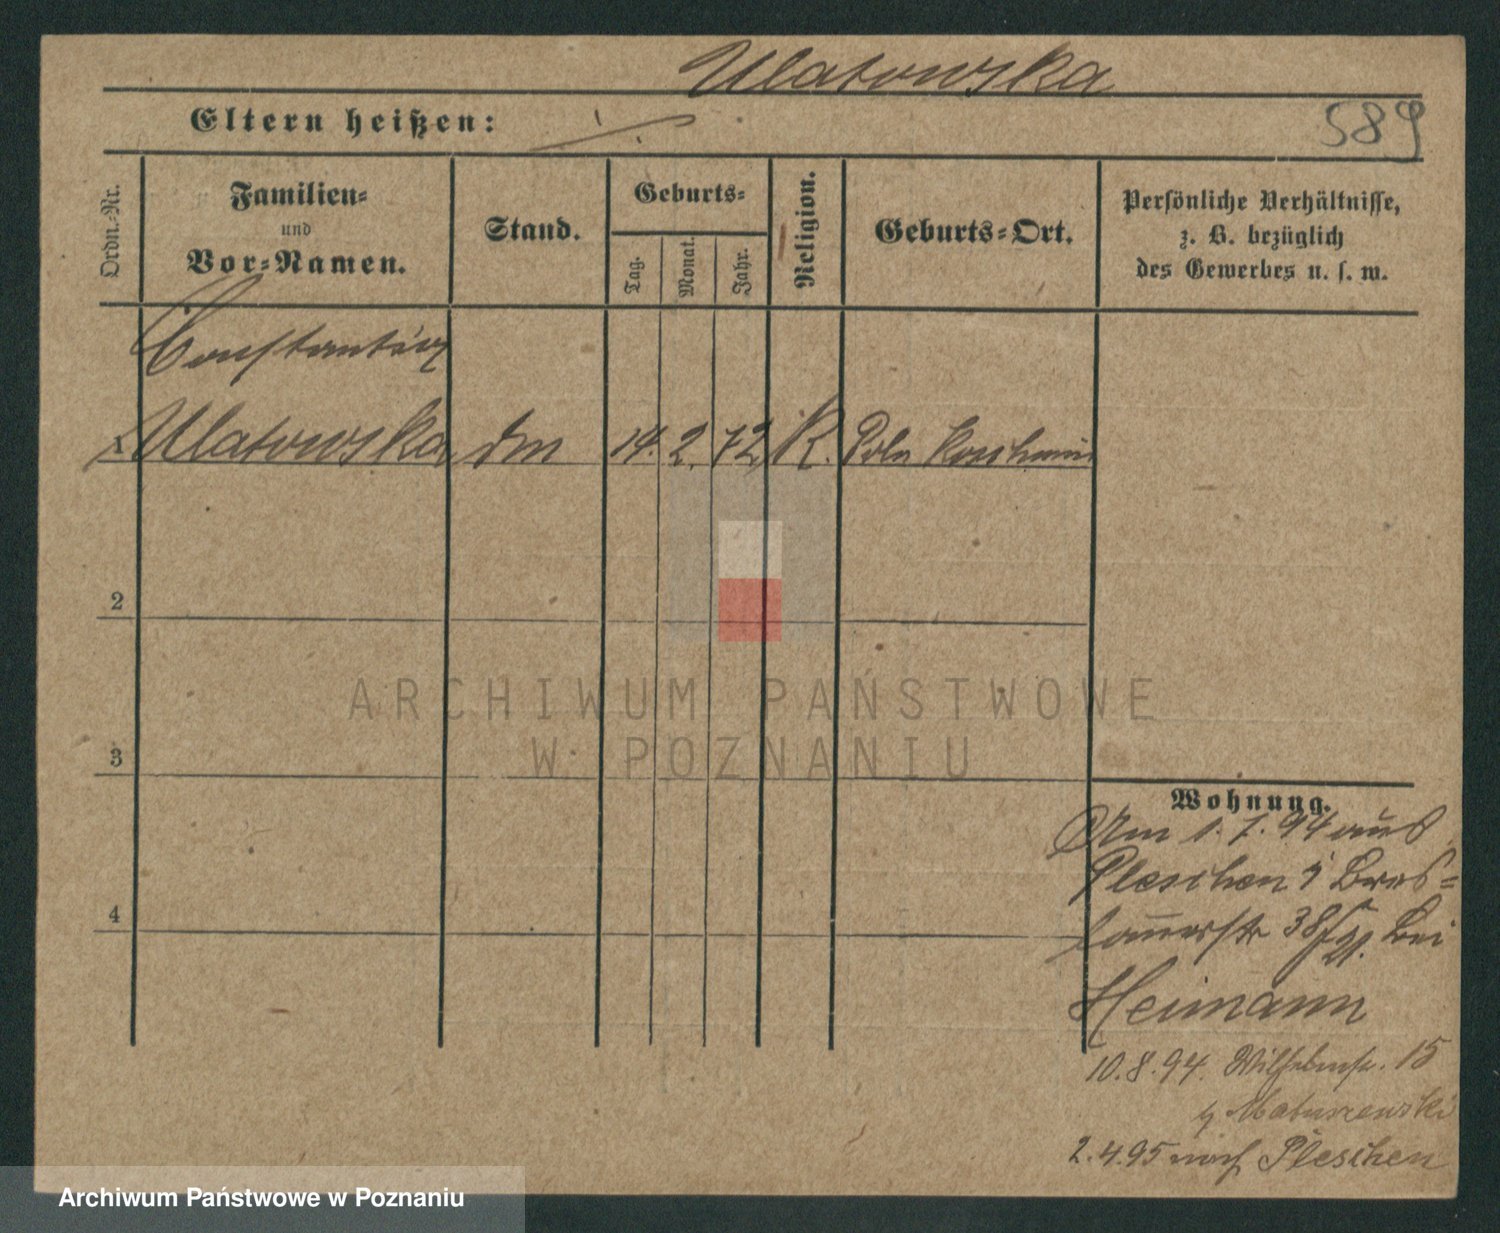 Ulatowska
Eltern heißen: ./.
589
Ordn.-Nr.
Familien-
und
Vor-Namen.
Stand.
Geburts-
Tag.
Monat.
Jahr.
Religion.
Geburts-Ort.
Persönliche Verhältnisse,
z. B. bezüglich
des Gewerbes u. s. w.
Constantine
1 Ulatowska dm 14. 2. 72 K. Poln Koschmin
2
3
4
ARCHIWUM PAŃSTWOWE
W POZNANIU
Wohnung.
Am 1. 7. 94 aus
Pleschen Bres=
lauerstr 38 bei
Heimann
10.8.94. Wilhelmstr. 15
Matuszewski
2.4.95 nach Pleschen
Archiwum Państwowe w Poznaniu